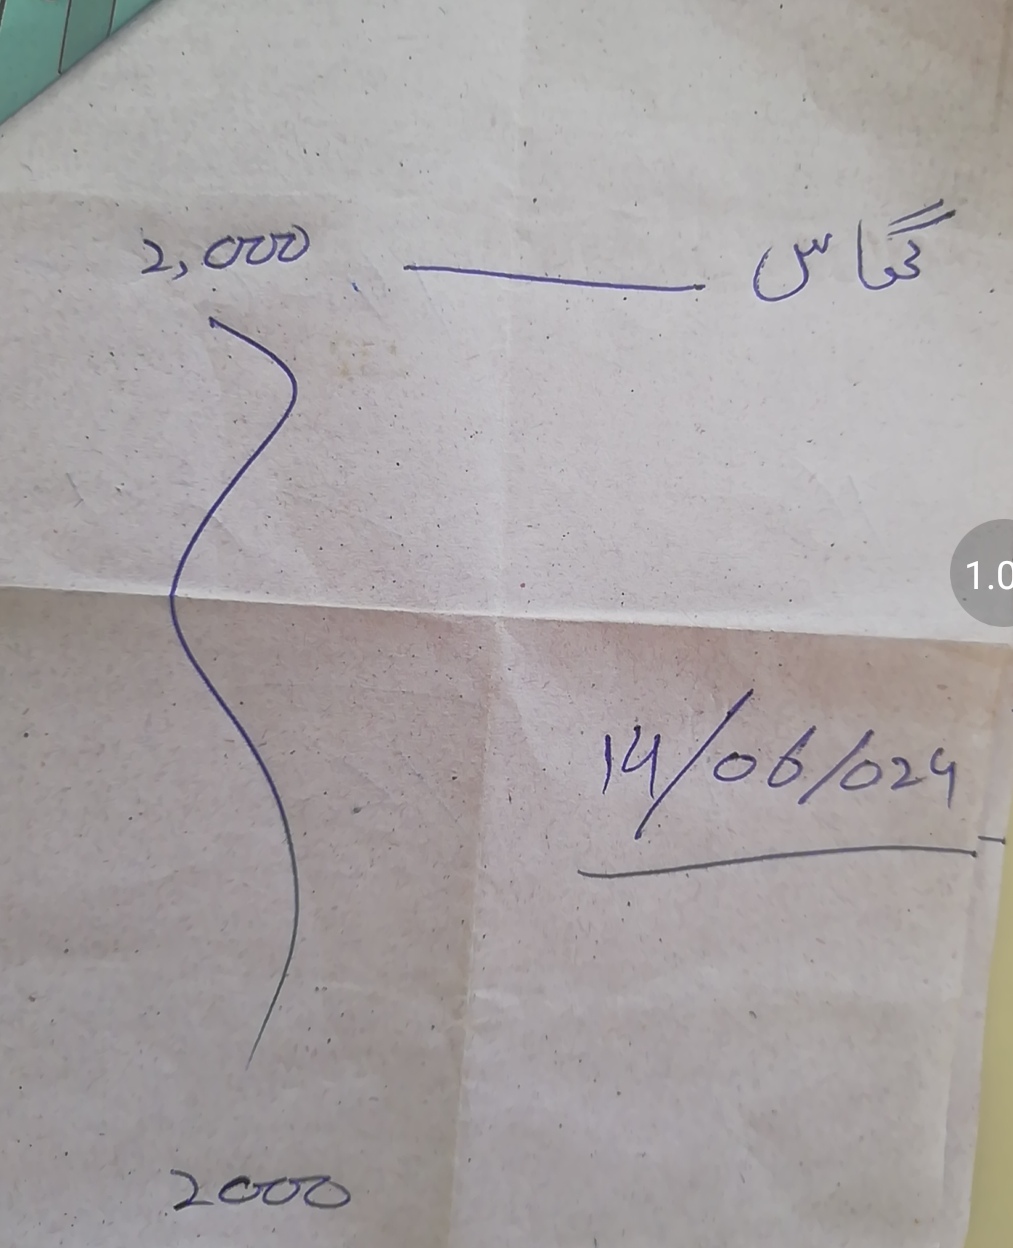 گھاس ——— 2,000
14/06/024
2000
1.0